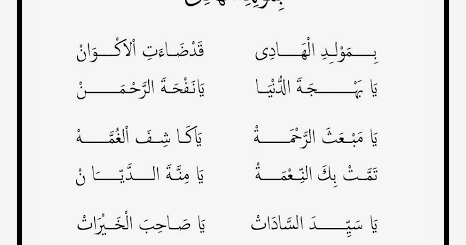 بِـمَوْلِـدِ الْهَـادِى قَدْضَـاءَتِ ٱلْاكْـوَانْ
يَا بَهْـجَـةَ الدُّنْيَـا يَانَفْحَـةَ الرَّحْمَـنْ
يَا مَبْـعَثَ الرَّحْمَـةْ يَاكَـا شِـفَ ٱلْغُمَّـهْ
تَمَّـتْ بِكَ النِّـعْمَـةْ يَا مِنَّـةَ الـدَّيَّـا نْ
يَا سَيِّـدَ السَّادَاتْ يَا صَـاحِبَ الْخَـيْرَاتْ